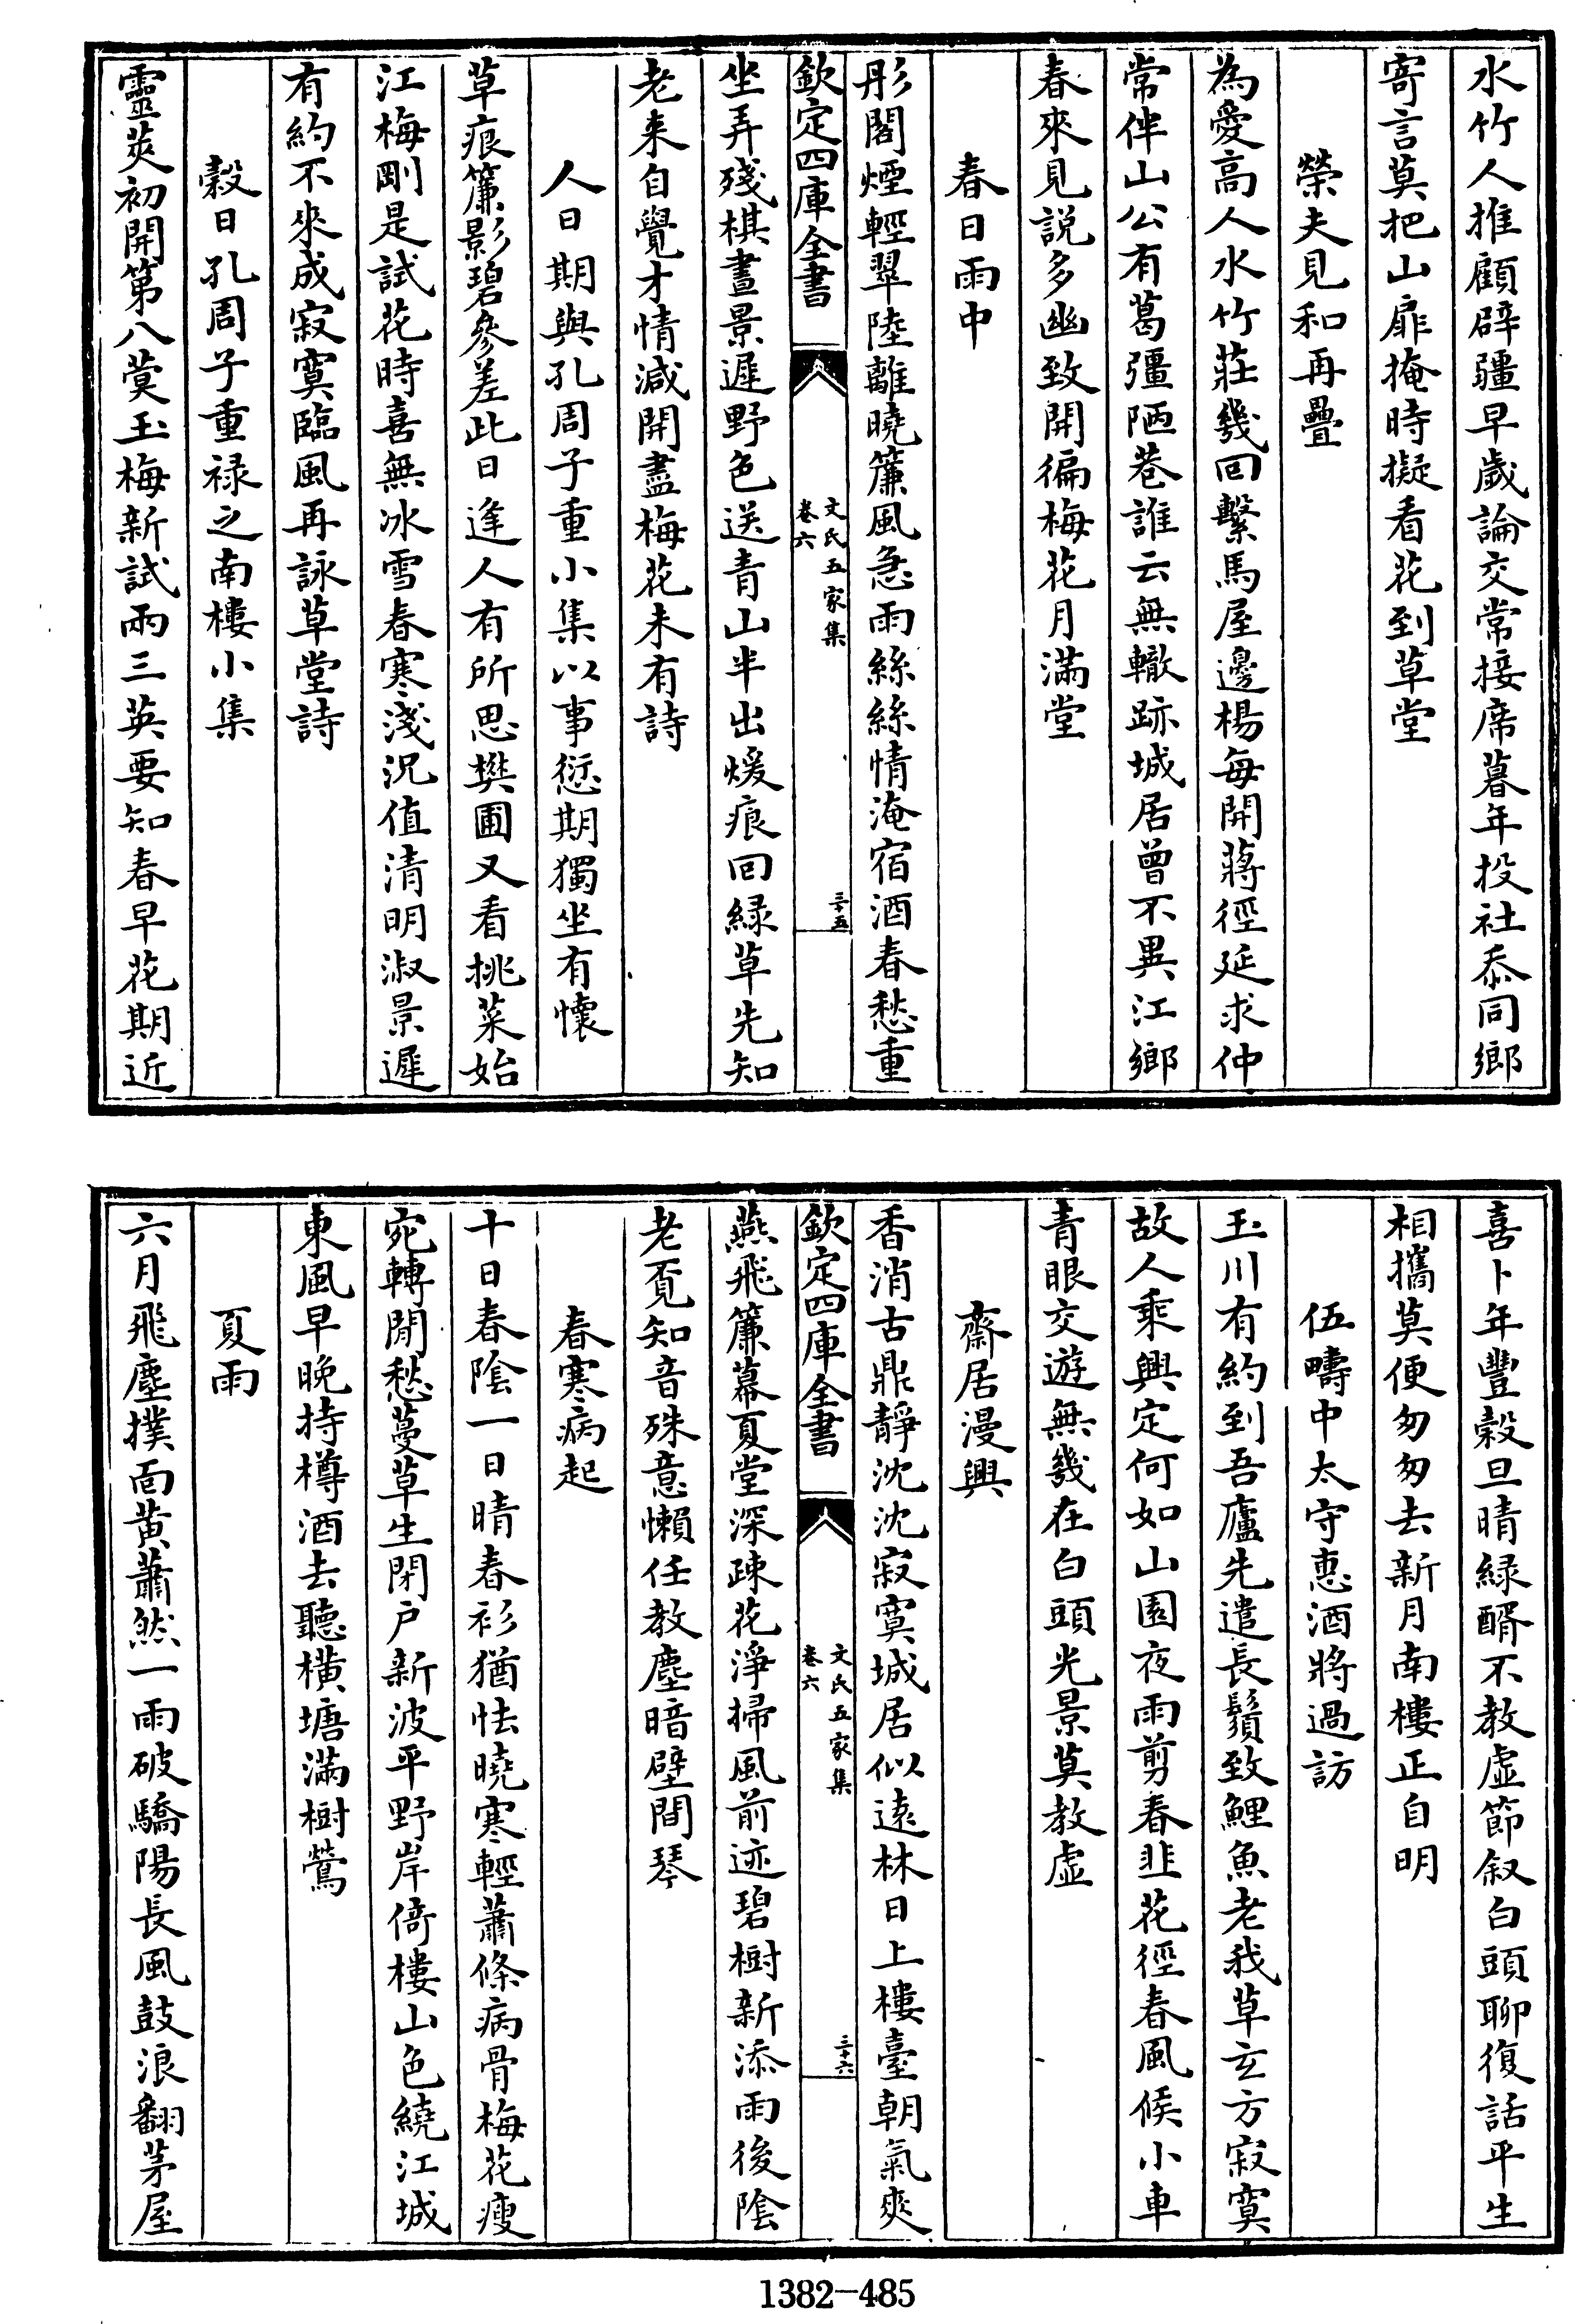 水竹人推顧辟疆早歲論交常接席暮年投社忝同鄉
寄言莫把山扉掩時擬看花到草堂
榮夫見和再疊
為愛高人水竹莊幾回繫馬屋邊楊每開蔣徑延求仲
常伴山公有葛彊陋巷誰云無轍跡城居曾不異江鄉
春來見説多幽致開徧梅花月滿堂
春日雨中
彤閣煙輕翠陸離曉簾風急雨絲絲情淹宿酒春愁重
欽定四庫全書
文氏五家集
卷六
三十五
坐弄殘棋晝景遲野色送青山半出煖痕回緑草先知
老来自覺才情減開盡梅花未有詩
人日期與孔周子重小集以事愆期獨坐有懷
草痕簾影碧參差此日逢人有所思樊圃又看挑菜始
江梅剛是試花時喜無冰雪春寒淺況值清明淑景遲
有約不來成寂寞臨風再詠草堂詩
穀日孔周子重禄之南樓小集
靈莢初開第八蓂玉梅新試兩三英要知春早花期近
喜卜年豐穀旦晴緑醑不教虛節叙白頭聊復話平生
相攜莫便匆匆去新月南樓正自明
伍疇中太守惠酒將過訪
玉川有約到吾廬先遣長鬚致鯉魚老我草玄方寂寞
故人乘興定何如山園夜雨剪春韭花徑春風候小車
青眼交遊無幾在白頭光景莫教虛
齋居漫興
香消古鼎靜沈沈寂寞城居似遠林日上樓臺朝氣爽
欽定四庫全書
文氏五家集
卷六
三十六
燕飛簾幕夏堂深疎花淨掃風前迹碧樹新添雨後陰
老覔知音殊意懶任教塵暗壁間琴
春寒病起
十日春陰一日晴春衫猶怯曉寒輕蕭條病骨梅花瘦
宛轉閒愁蔓草生閉户新波平野岸倚樓山色繞江城
東風早晚持樽酒去聽橫塘滿樹鶯
夏雨
六月飛塵撲面黄蕭然一雨破驕陽長風鼓浪翻茅屋
1382-485